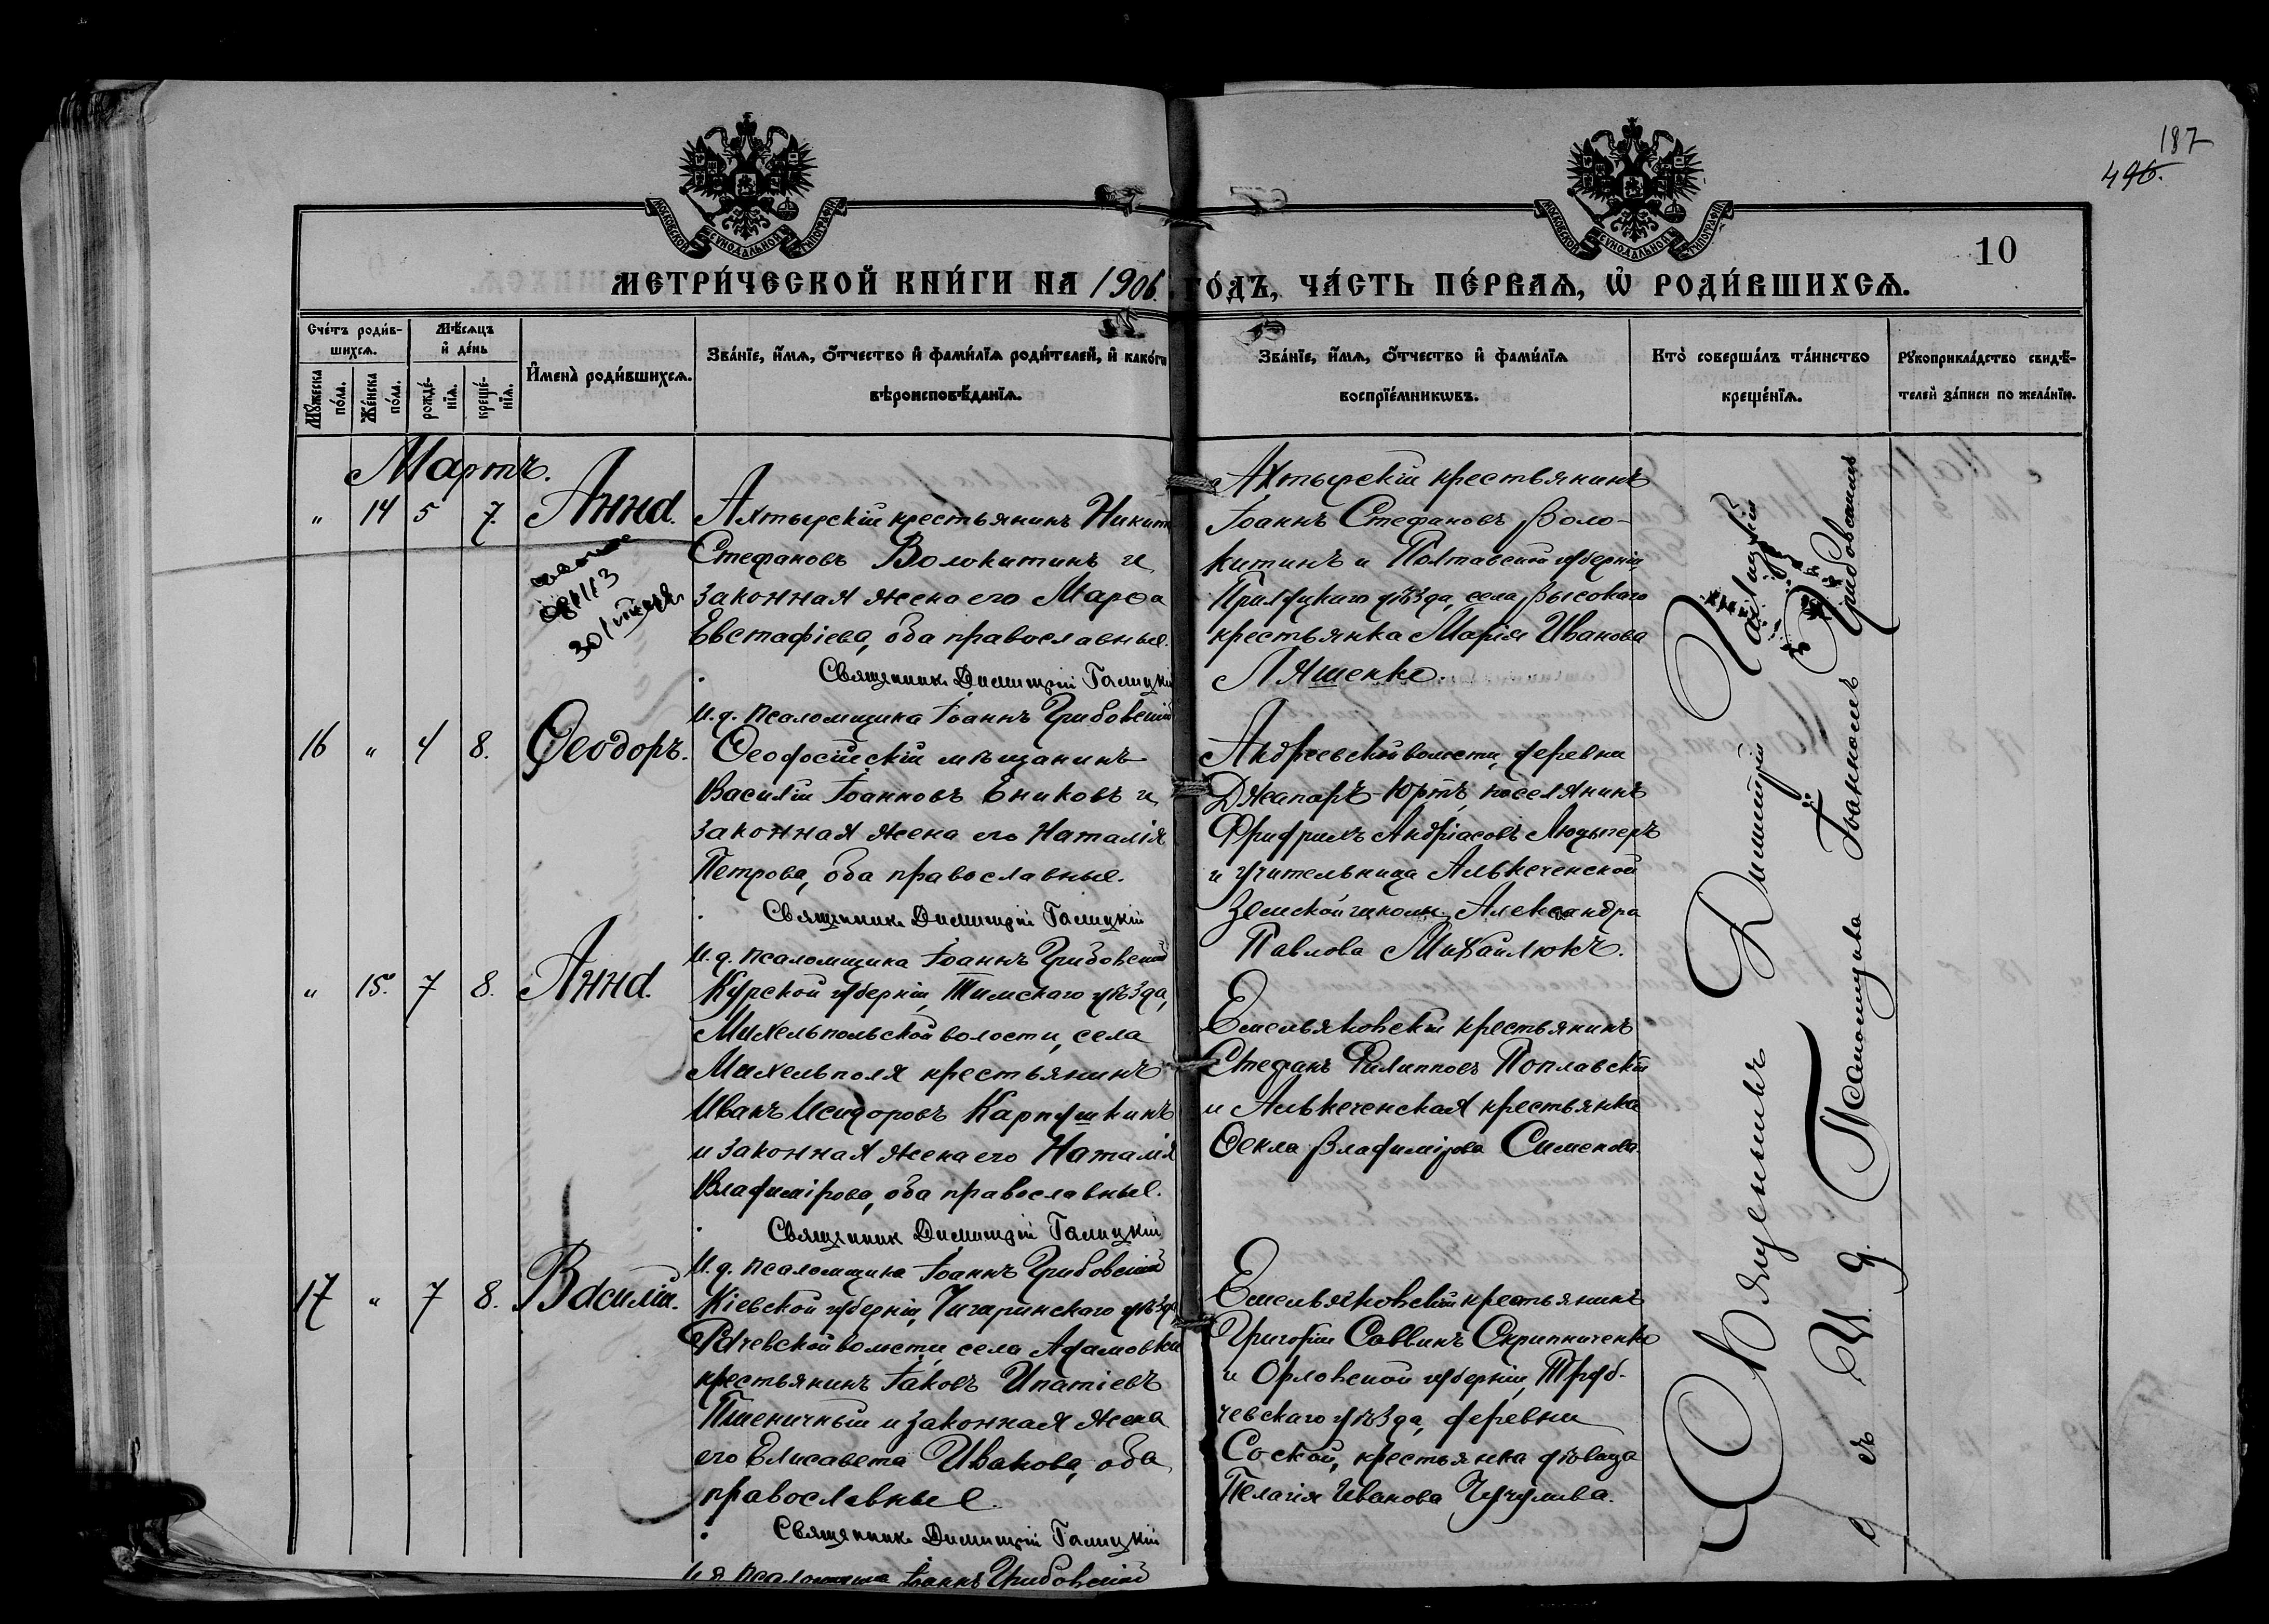 187
496.
МОСКОВСКОЙ СѴНОДАЛЬНОЙ ТИПОГРАФІИ
МОСКОВСКОЙ СѴНОДАЛЬНОЙ ТИПОГРАФІИ
10
МЕТРИ́ЧЕСКОЙ КНИ́ГИ НА 1906 ГО́ДЪ, ЧА́СТЬ ПЕ́РВАѦ, Ѡ҆ РОДИ́ВШИХСѦ.
Сче́тъ роди́в-
шихсѧ.
Мѣ́сѧцъ
и҆ де́нь
Мꙋ́жеска
по́ла.
Же́нска
по́ла.
рожде́-
нїѧ.
креще́-
нїѧ.
И҆мена̀ роди́вшихсѧ.
Зва́нїе, и҆́мѧ, ѻ҆́тчество и҆ фами́лїѧ роди́телей, и҆ како́гѡ
вѣроисповѣ́данїѧ.
Зва́нїе, и҆́мѧ, ѻ҆́тчество и҆ фами́лїѧ
воспрїе́мникѡвъ.
Кто̀ соверша́лъ та́инство
креще́нїѧ.
Рꙋкоприкла́дство свидѣ́-
телей за́писи по жела́нїю.
Мартъ.
" 14 5 7. Анна.
Ахтырскій крестьянинъ Никита
Стефановъ Волокитинъ и
законная жена его Марѳа
Евстафіева, оба православные.
Священникъ Димитрій Галицкій
И. д. псаломщика Іоаннъ Грибовскій
Ахтырскій крестьянинъ
Іоаннъ Стефановъ Воло-
китинъ и Полтавской губерніи
Прилуцкаго уѣзда, села Высокаго
крестьянка Марія Иванова
Ляшенко.
16 " 4 8. Ѳеодоръ.
Ѳеодосійскій мѣщанинъ
Василій Іоанновъ Ениковъ и
законная жена его Наталія
Петрова, оба православные.
Священникъ Димитрій Галицкій
И. д. псаломщика Іоаннъ Грибовскій
Андреевской волости, деревни
Джапаръ-Юртъ, поселянинъ
Фридрихъ Андріасовъ
и учительница Алькеченской
земской школы Александра
Павлова Михайлюкъ.
" 15. 7 8. Анна.
Курской губерніи, Тимскаго уѣзда,
Михельпольской волости, села
Михельполя крестьянинъ
Иванъ Исидоровъ Карпушкинъ
и законная жена его Наталія
Владимірова, оба православные.
Священникъ Димитрій Галицкій
И. д. псаломщика Іоаннъ Грибовскій
Емельяновскій крестьянинъ
Стефанъ Филипповъ Поплавскій
и Алькеченская крестьянка
Ѳекла Владимірова Сименова.
17 " 7 8. Василій.
Кіевской губерніи, Чигиринскаго уѣзда
волости, села Адамовки
крестьянинъ Іаковъ Ипатіевъ
Пшеничный и законная жена
его Елисавета Иванова, оба
православные.
Священникъ Димитрій Галицкій
И. д. псаломщика Іоаннъ Грибовскій
Емельяновскій крестьянинъ
Григорій Саввинъ Скрипниченко
и Орловской губерніи, Труб-
чевскаго уѣзда, деревни
Соской, крестьянка дѣвица
Пелагія Иванова Чучулива.
Священникъ Димитрій Галицкій
съ И. д. Псаломщика Іоанномъ Грибовскимъ